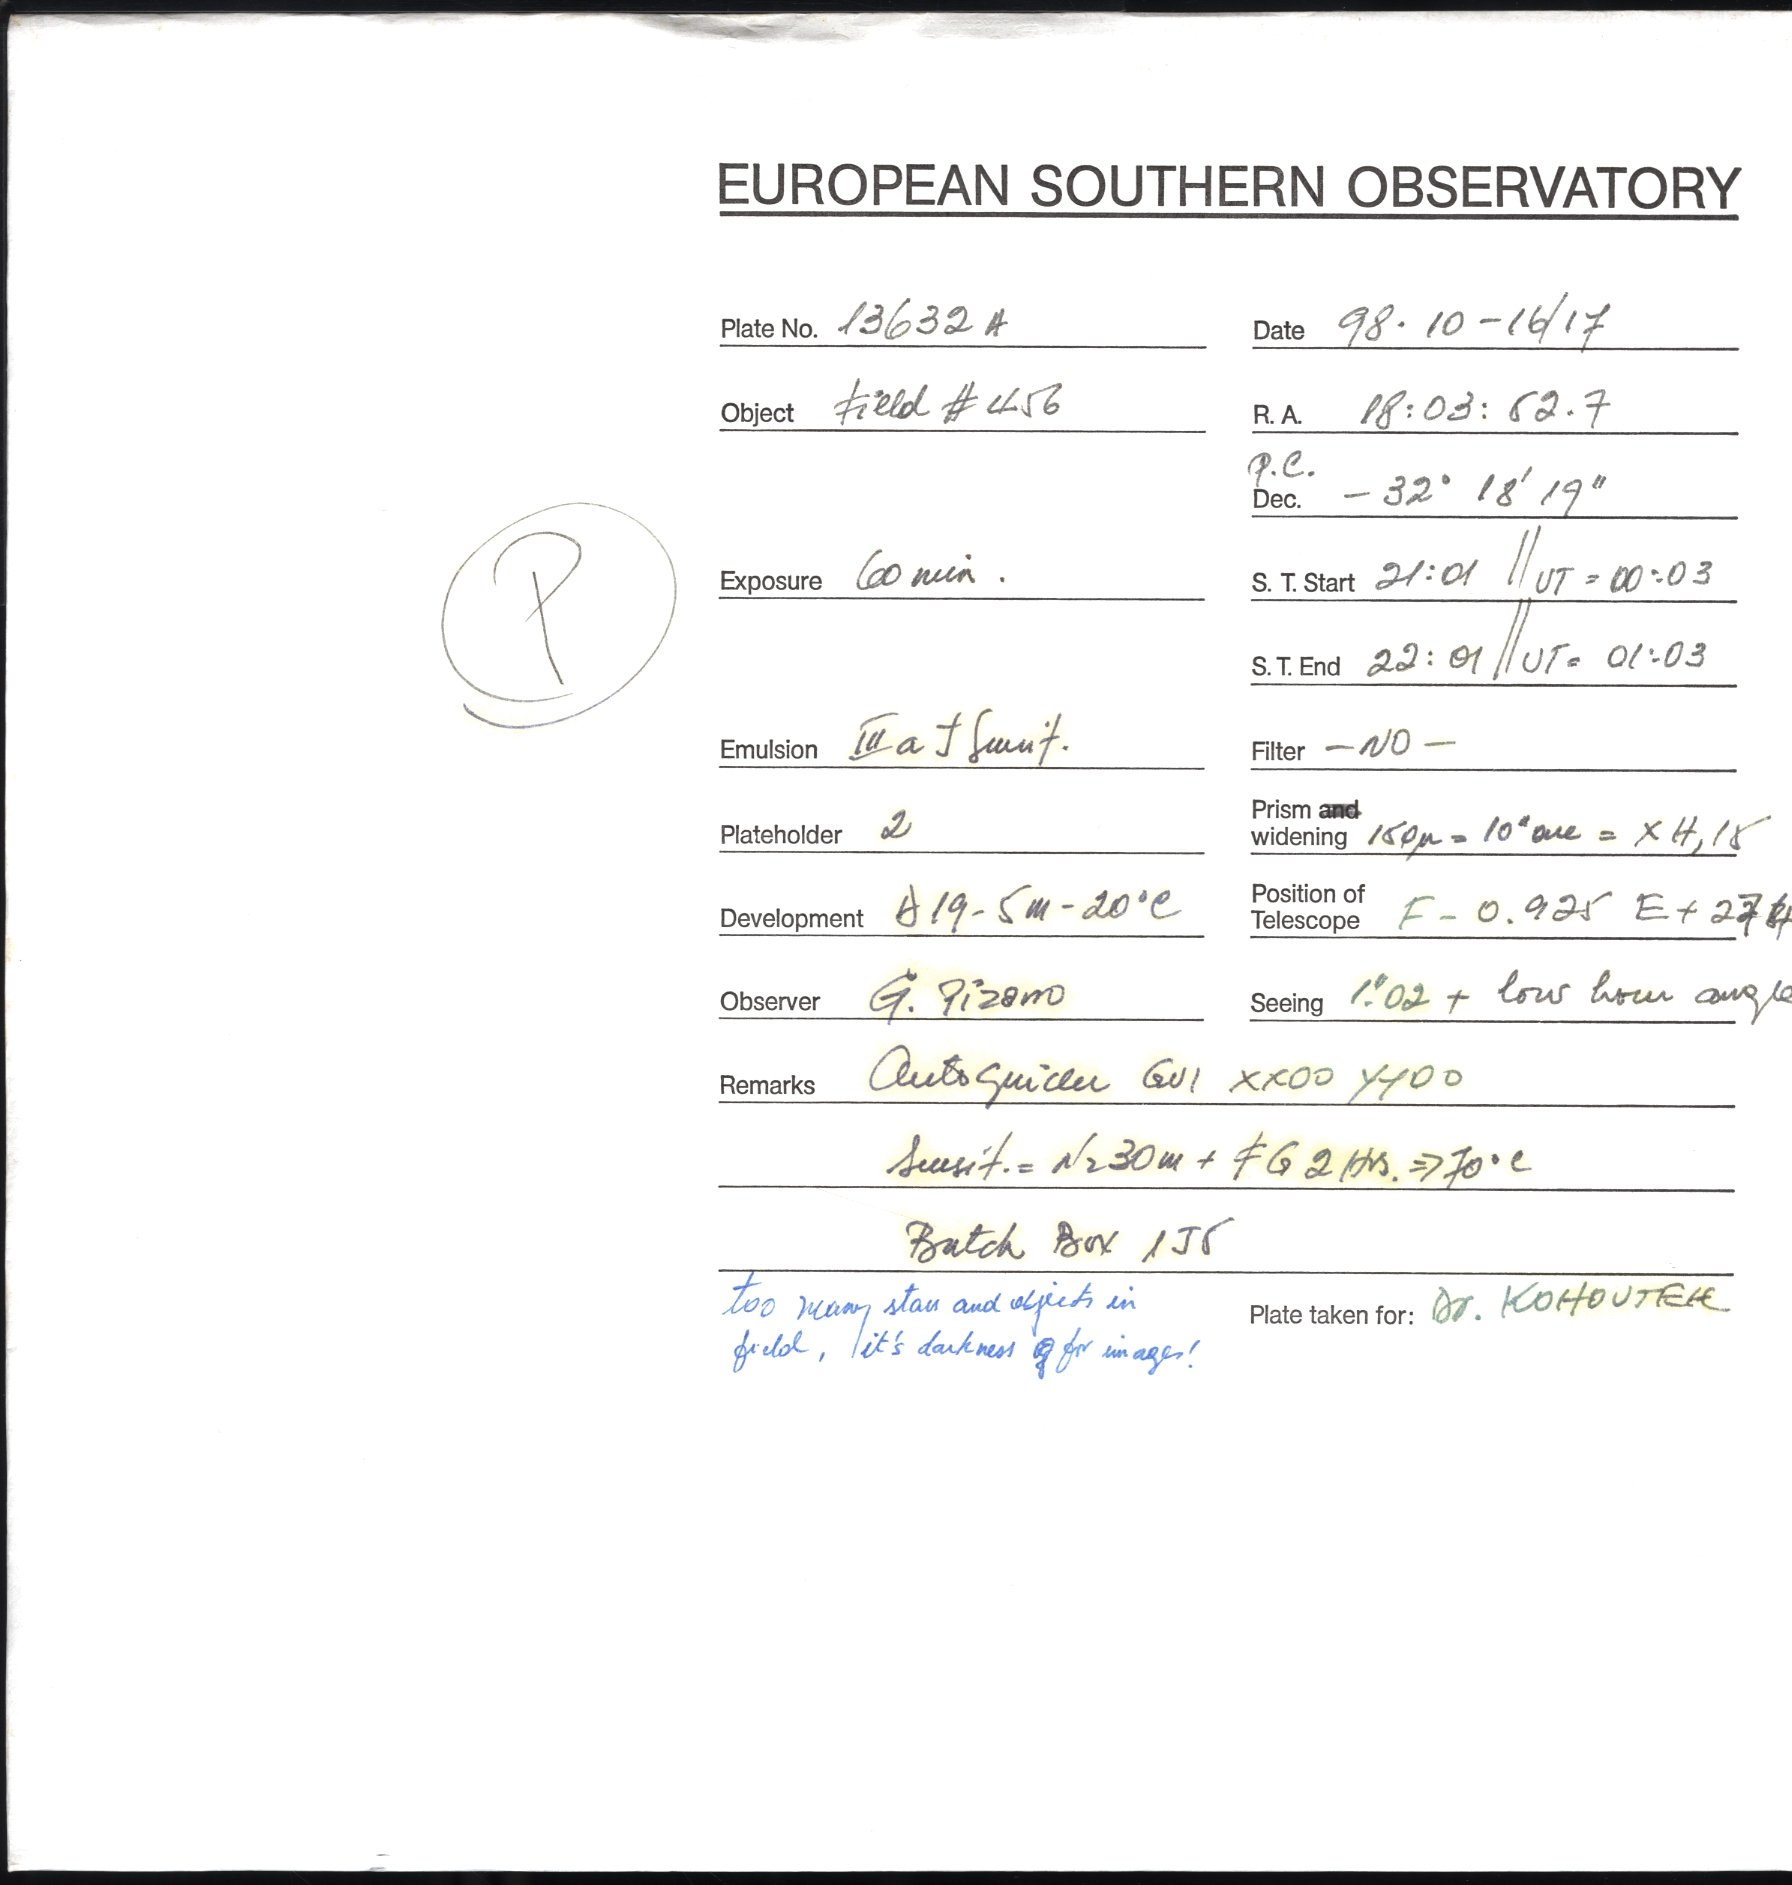 EUROPEAN SOUTHERN OBSERVATORY
Plate No. 13632 A
Date 98. 10 - 16/17
Object Field # 456
R. A. 18:03: 52.7
P.C.
Dec. - 32° 18' 19"
P
Exposure 60 min.
S. T. Start 21:01 // UT = 00:03
S. T. End 22:01 // UT = 01:03
Emulsion III a J Sensit.
Filter - NO -
Plateholder 2
Prism and
widening 150μ = 10" arc = x H, 18
Development D 19 - 5 m - 20°C
Position of
Telescope F - 0.925 E +
Observer G. Pizarro
Seeing 1."02 + low hour angle
Remarks Autoguider GU1 XX00 YY00
Sensit. = N2 30m + FG 2 Hrs. => 70°C
Batch Box 1J5
too many stars and objects in
field, it's darkness for images!
Plate taken for: Dr. KOHOUTEK